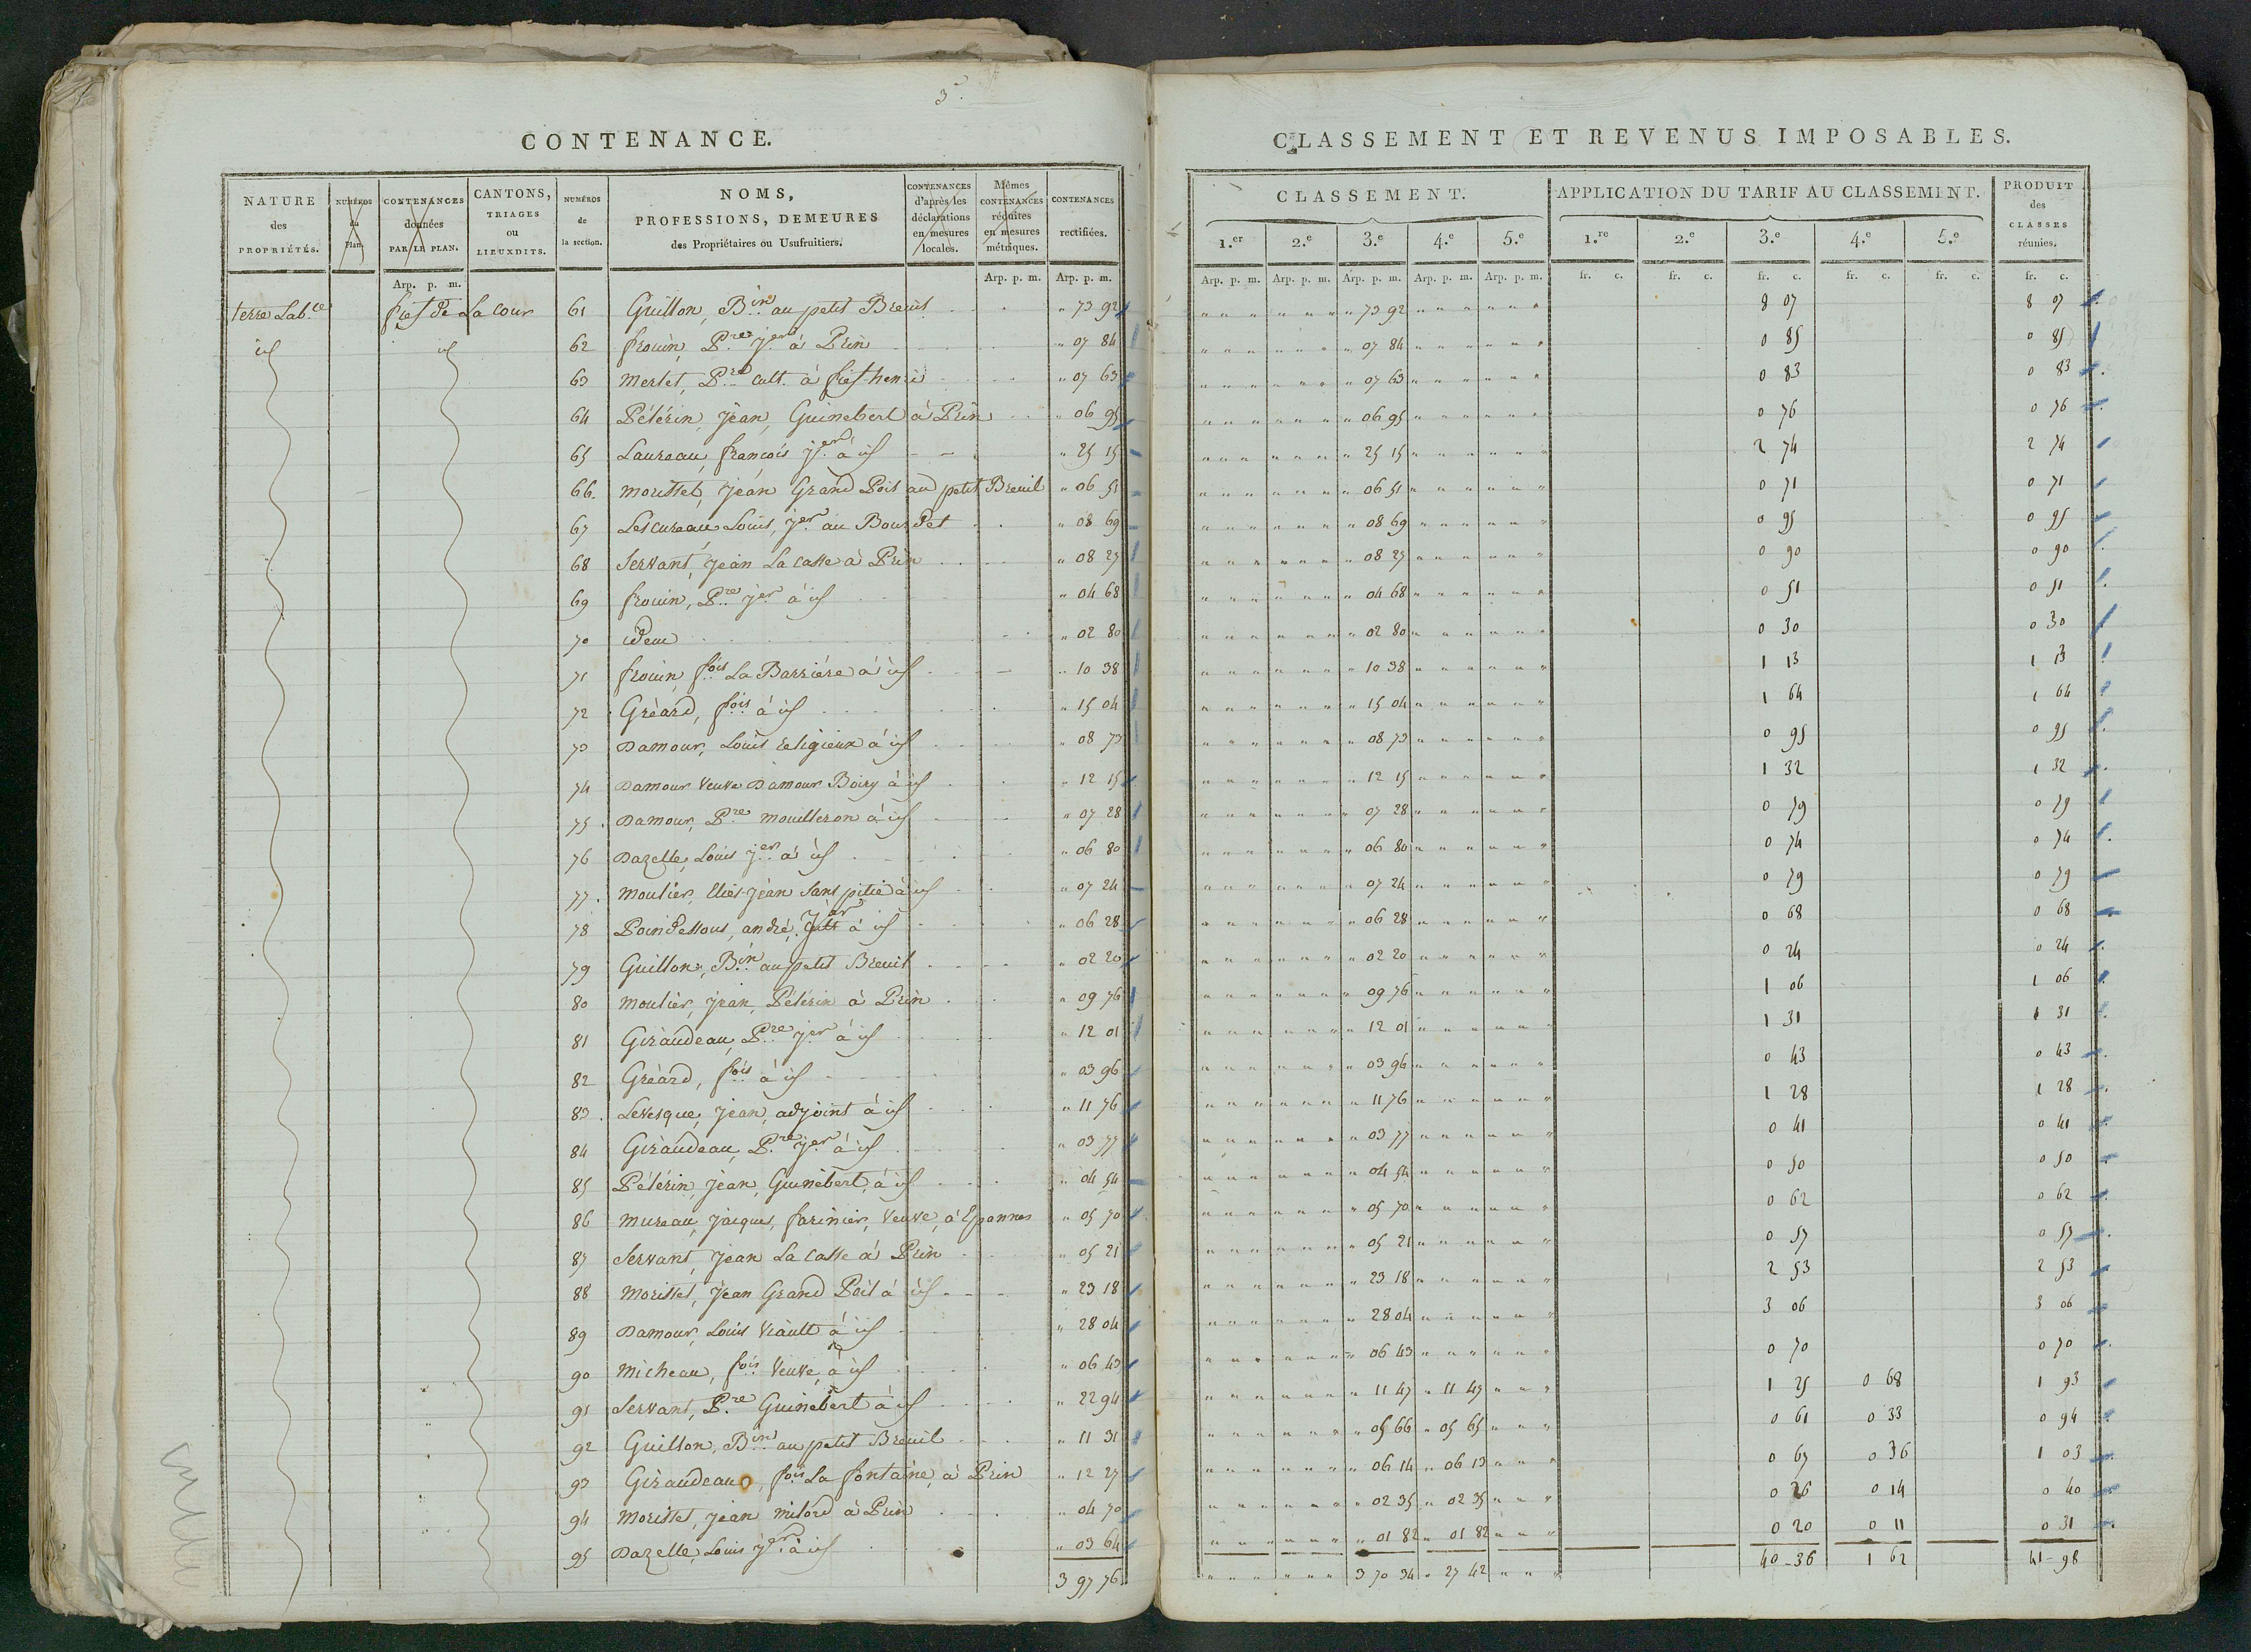 3
CONTENANCE.
NATURE des PROPRIÉTÉS. NUMÉROS du Plan. CONTENANCES données PAR LE PLAN. CANTONS, TRIAGES ou LIEUXDITS. NUMÉROS de la section. NOMS, PROFESSIONS, DEMEURES des Propriétaires ou Usufruitiers. CONTENANCES d'après les déclarations en mesures locales. Mêmes CONTENANCES réduites en mesures métriques. CONTENANCES rectifiées.
Arp. p. m. Arp. p. m. Arp. p. m.
terre Lab.le fief de La Cour 61 Guillon, B.in au petit Breuil " 73 92
id id 62 frouin, P.re j.er à Prin " 07 84
63 Merlet, P.re cult. à fief henri " 07 63
64 Pélérin, Jean, Guinebert à Prin " 06 95
65 Laureau, francois j.er à id " 25 15
66. Morisset, Jean Grand Poil au petit Breuil " 06 51
67 Lescureau Louis, j.er au Bourdet " 08 69
68 Servant, Jean La Casse à Prin " 08 27
69 frouin, P.re j.er à id " 04 68
70 idem " 02 80
71 frouin, f.ois La Barrière à id " 10 38
72 Gréard, f.ois à id " 15 04
73 Damour, Louis religieux à id " 08 73
74 Damour Veuve Damour Boiry à id " 12 15
75. Damour, P.re mouilleron à id " 07 28
76 Dazelle, Louis j.er à id " 06 80
77. Moulier, Elies-Jean Sans pitié à id " 07 24
78 Poindessous, andré, j.er à id " 06 28
79 Guillon, B.in au petit Breuil " 02 20
80 Moulier, Jean, Pélérin à Prin " 09 76
81 Giraudeau, P.re j.er à id " 12 01
82 Gréard, f.ois à id " 03 96
83. Levesque, Jean, adjoint à id " 11 76
84 Giraudeau, P.re j.er à id " 03 77
85 Pélérin, Jean, Guinebert, à id " 04 54
86 Mureau, Jacques, farinier, Veuve, à Epannes " 05 70
87 Servant, Jean La Casse à Prin " 05 21
88 Morisset, Jean Grand Poil à id " 23 18
89 Damour, Louis Viault à id " 28 04
90 Micheau, f.ois Veuve, à id " 06 43
91 Servant, P.re Guinebert à id " 22 94
92 Guillon, B.in au petit Breuil " 11 31
93 Giraudeau, f.ois La fontaine, à Prin " 12 27
94 Morisset, Jean milord à Prin " 04 70
95 Dazelle, Louis j.er à id " 03 64
3 97 76
CLASSEMENT ET REVENUS IMPOSABLES.
CLASSEMENT. APPLICATION DU TARIF AU CLASSEMENT. PRODUIT des CLASSES réunies.
1.er 2.e 3.e 4.e 5.e 1.re 2.e 3.e 4.e 5.e
Arp. p. m. Arp. p. m. Arp. p. m. Arp. p. m. Arp. p. m. fr. c. fr. c. fr. c. fr. c. fr. c. fr. c.
" 73 92 8 07 8 07
" 07 84 0 85 0 85
" 07 63 0 83 0 83
" 06 95 0 76 0 76
" 25 15 2 74 2 74
" 06 51 0 71 0 71
" 08 69 0 95 0 95
" 08 27 0 90 0 90
" 04 68 0 51 0 51
" 02 80 0 30 0 30
" 10 38 1 13 1 13
" 15 04 1 64 1 64
" 08 73 0 95 0 95
" 12 15 1 32 1 32
" 07 28 0 79 0 79
" 06 80 0 74 0 74
" 07 24 0 79 0 79
" 06 28 0 68 0 68
" 02 20 0 24 0 24
" 09 76 1 06 1 06
" 12 01 1 31 1 31
" 03 96 0 43 0 43
" 11 76 1 28 1 28
" 03 77 0 41 0 41
" 04 54 0 50 0 50
" 05 70 0 62 0 62
" 05 21 0 57 0 57
" 23 18 2 53 2 53
" 28 04 3 06 3 06
" 06 43 0 70 0 70
" 11 47 " 11 47 1 25 0 68 1 93
" 05 66 " 05 65 0 61 0 33 0 94
" 06 14 " 06 13 0 67 0 36 1 03
" 02 35 " 02 35 0 26 0 14 0 40
" 01 82 " 01 82 0 20 0 11 0 31
3 70 34 " 27 42 40-36 1 62 41-98